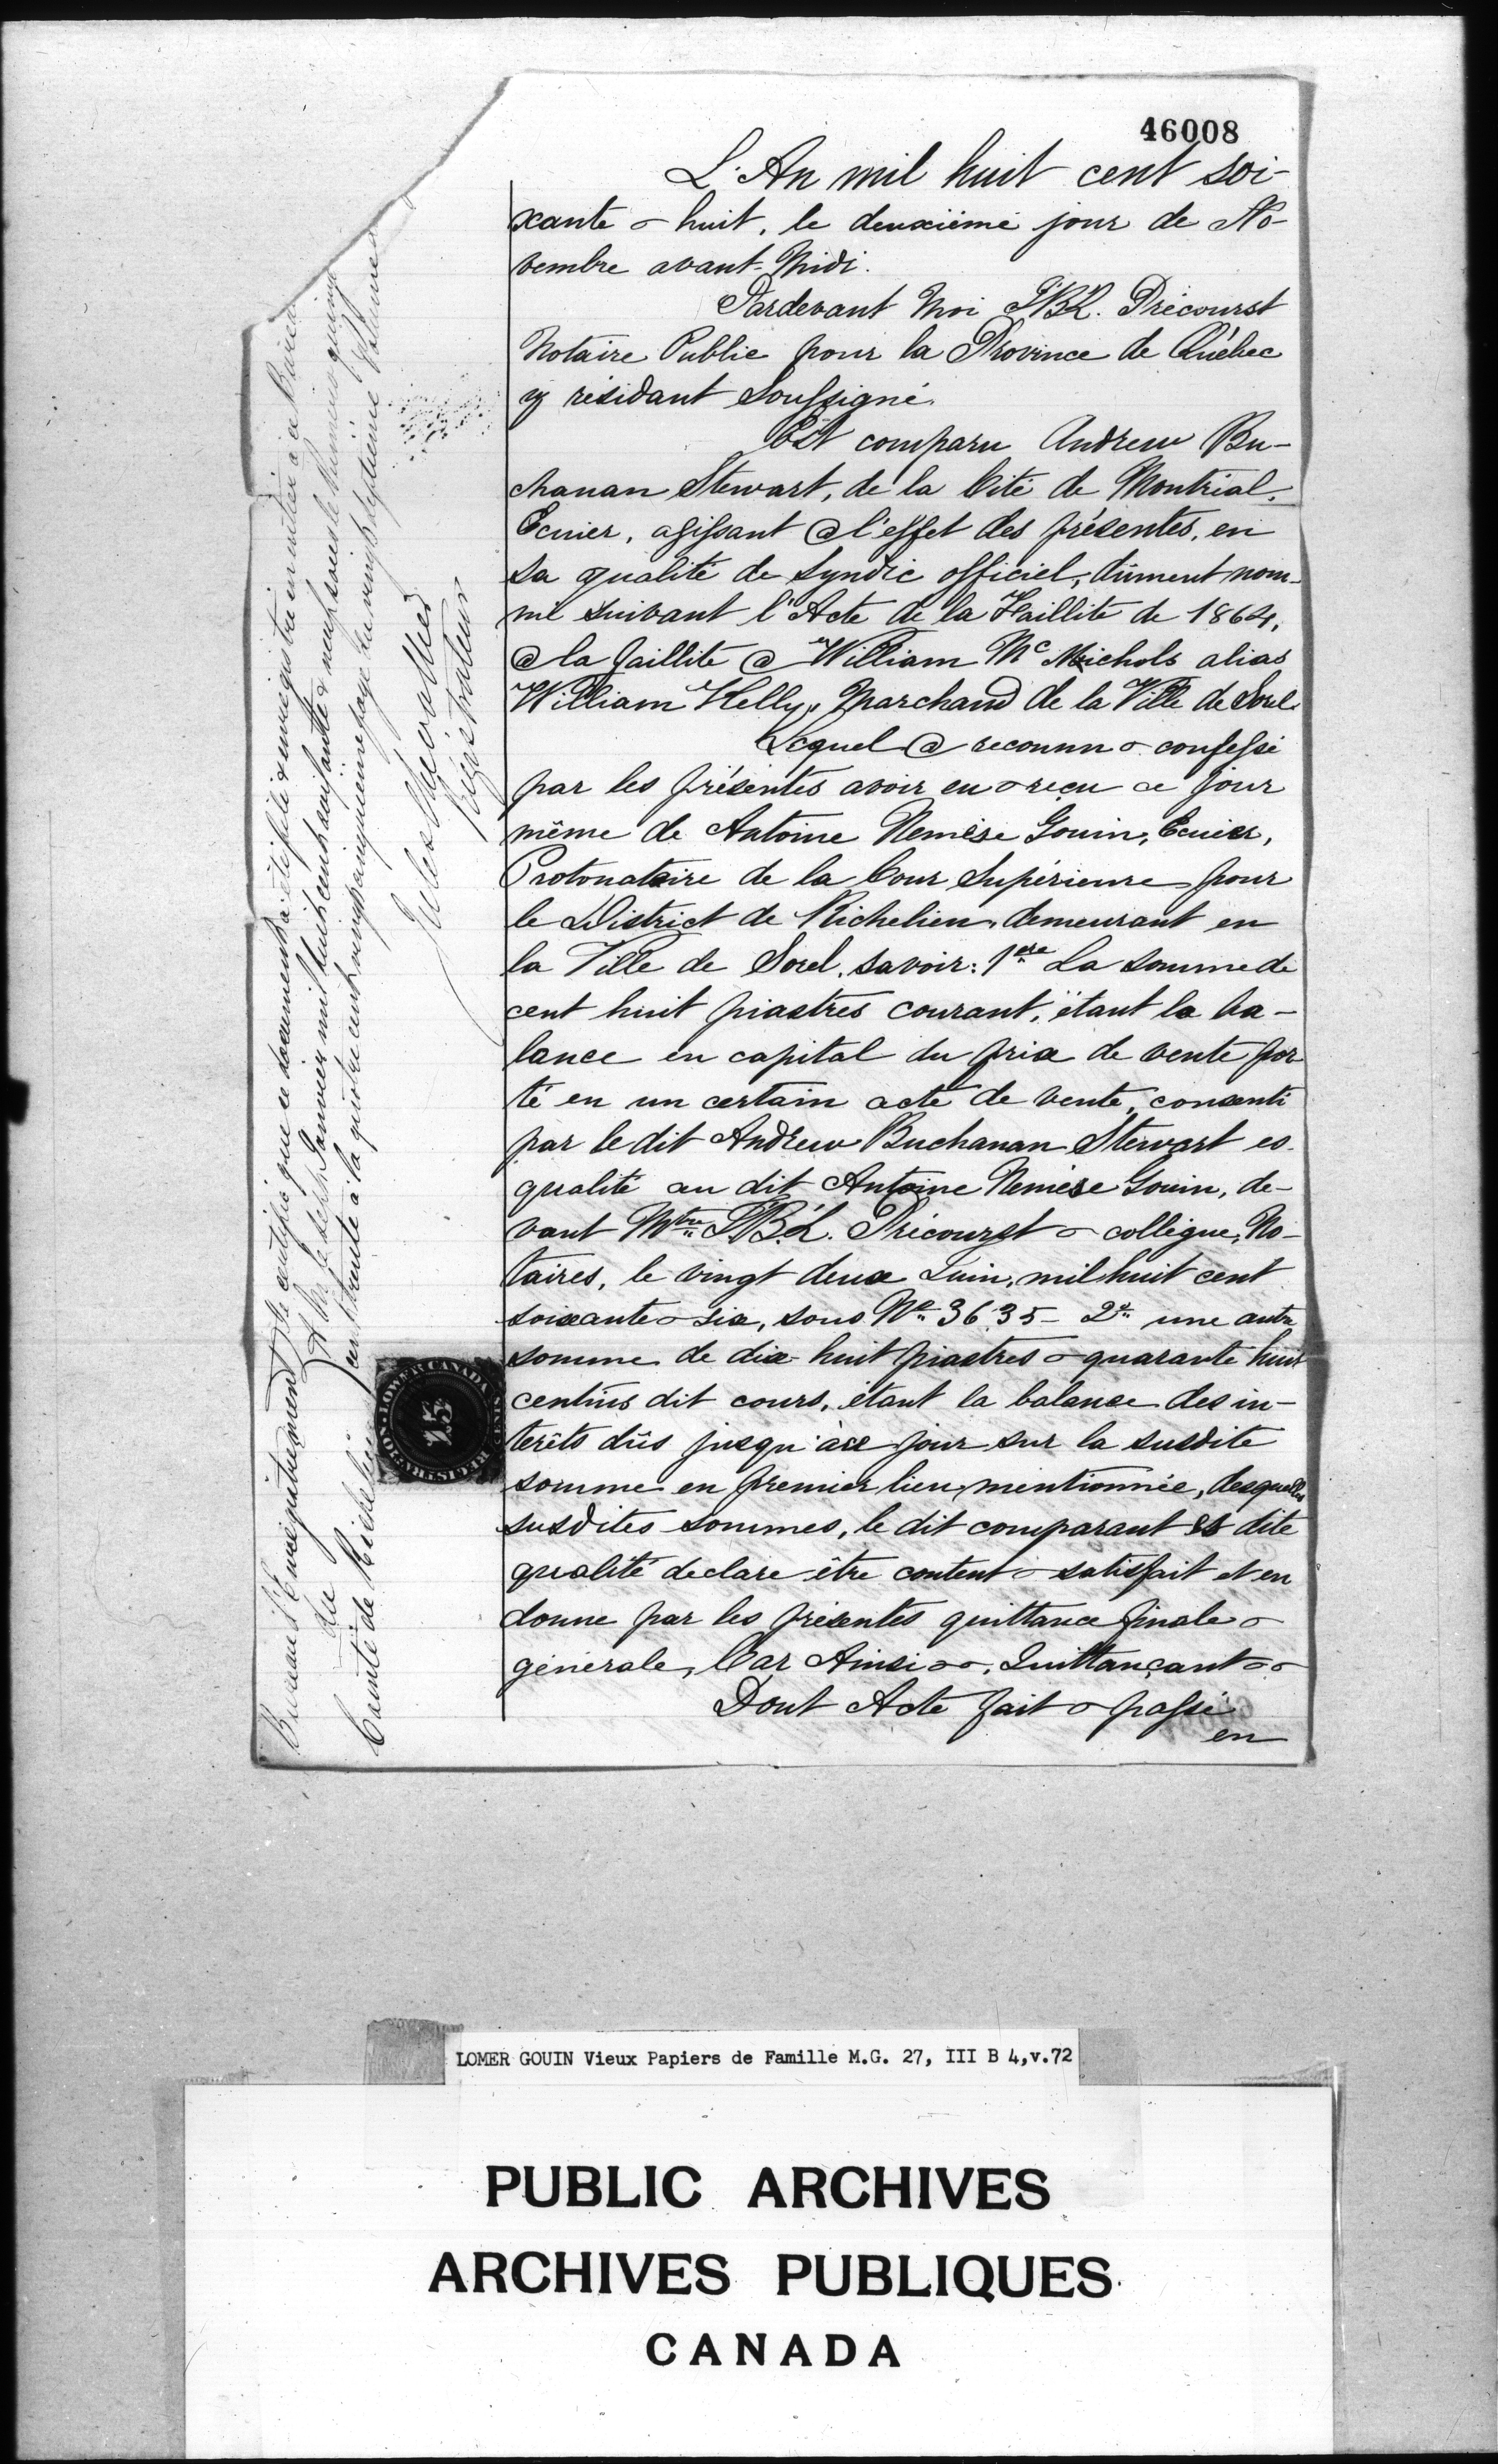 46008
L'An mil huit cent soi-
xante & huit, le deuxième jour de No-
vembre avant-Midi.
Pardevant Moi P.R. Précourst
Notaire Public pour la Province de Québec
y résidant Soussigné.
Est comparu Andrew Bu-
chanan Stewart, de la Cité de Montréal,
Ecuier, agissant @ l'effet des présentes, en
sa qualité de Syndic officiel, dûment nom-
mé suivant l'Acte de la Faillite de 1864,
@ la faillite @ William Mc Nichols alias
William Kelly, Marchand de la Ville de Sorel.
Lequel @ reconnu & confessé
par les présentes avoir eu & reçu ce jour
même de Antoine Nemèse Gouin, Ecuier,
Protonotaire de la Cour Supérieure pour
le District de Richelieu, demeurant en
la Ville de Sorel, savoir: 1ere La somme de
cent huit piastres courant, étant la ba-
lance en capital du prix de vente por-
té en un certain acte de vente, consenti
par le dit Andrew Buchanan Stewart es-
qualité au dit Antoine Nemèse Gouin, de-
vant Mtre Précourst & collègue, No-
taires, le vingt deux Juin, mil huit cent
soixante & six, sous No 3635 - 2e une autre
somme de dix-huit piastres & quarante huit
centins dit cours, étant la balance des in-
terêts dûs jusqu'à ce jour sur la susdite
somme en premier lieu mentionnée, desquelles
susdites sommes, le dit comparant es dite
qualité declare être content & satisfait et en
donne par les présentes quittance finale &
générale, Car Ainsi &&, Quittançant &&
Dont Acte fait & passé
en
Bureau d'Enregistrement
du
Comté de Richelieu
Je certifie que ce document a été & enregistré en entier à ce Bureau
A. M. le sept Janvier mil huit cent soixante & neuf sous le Numéro quinze
cent trente à la quatre cent vingt cinquième page du vingt septième Volume
Jules Chevallier
Régistrateur
LOWER CANADA
REGISTRATION
15
CENTS
LOMER GOUIN Vieux Papiers de Famille M.G. 27, III B 4,v.72
PUBLIC ARCHIVES
ARCHIVES PUBLIQUES
CANADA